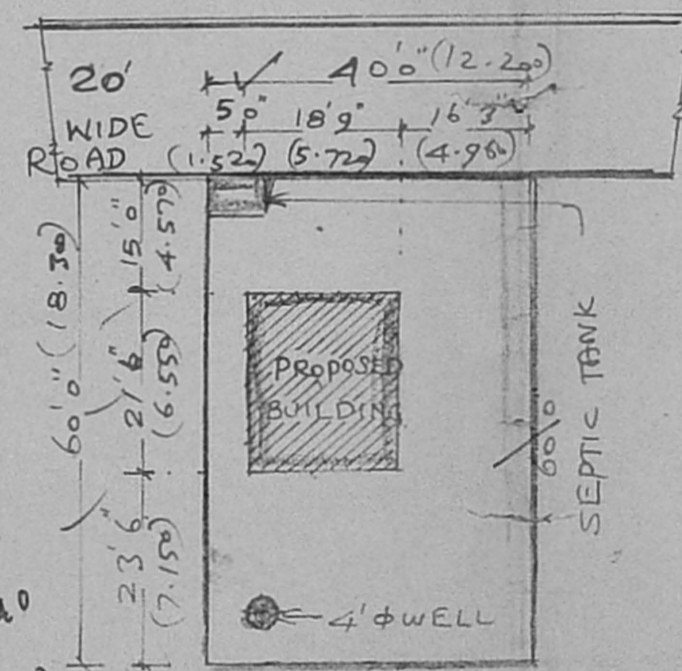 20'
WIDE
ROAD
40'0" (12.200)
5'0" 18'9" 16'3"
(1.520) (5.720) (4.960)
60'0" (18.300)
15'0"
(4.570)
21'6"
(6.550)
23'6"
(7.150)
PROPOSED
BUILDING
SEPTIC TANK
60'0
4' Φ WELL